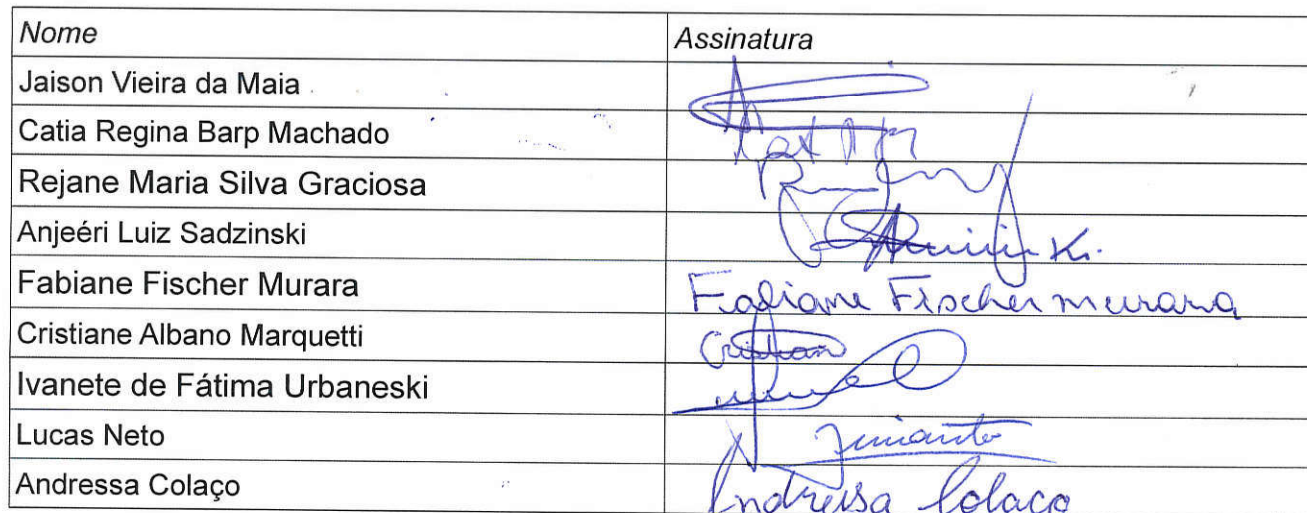 Nome Assinatura
Jaison Vieira da Maia
Catia Regina Barp Machado
Rejane Maria Silva Graciosa
Anjeéri Luiz Sadzinski
Fabiane Fischer Murara Fabiane Fischer Murara
Cristiane Albano Marquetti
Ivanete de Fátima Urbaneski
Lucas Neto
Andressa Colaço Andressa Colaço